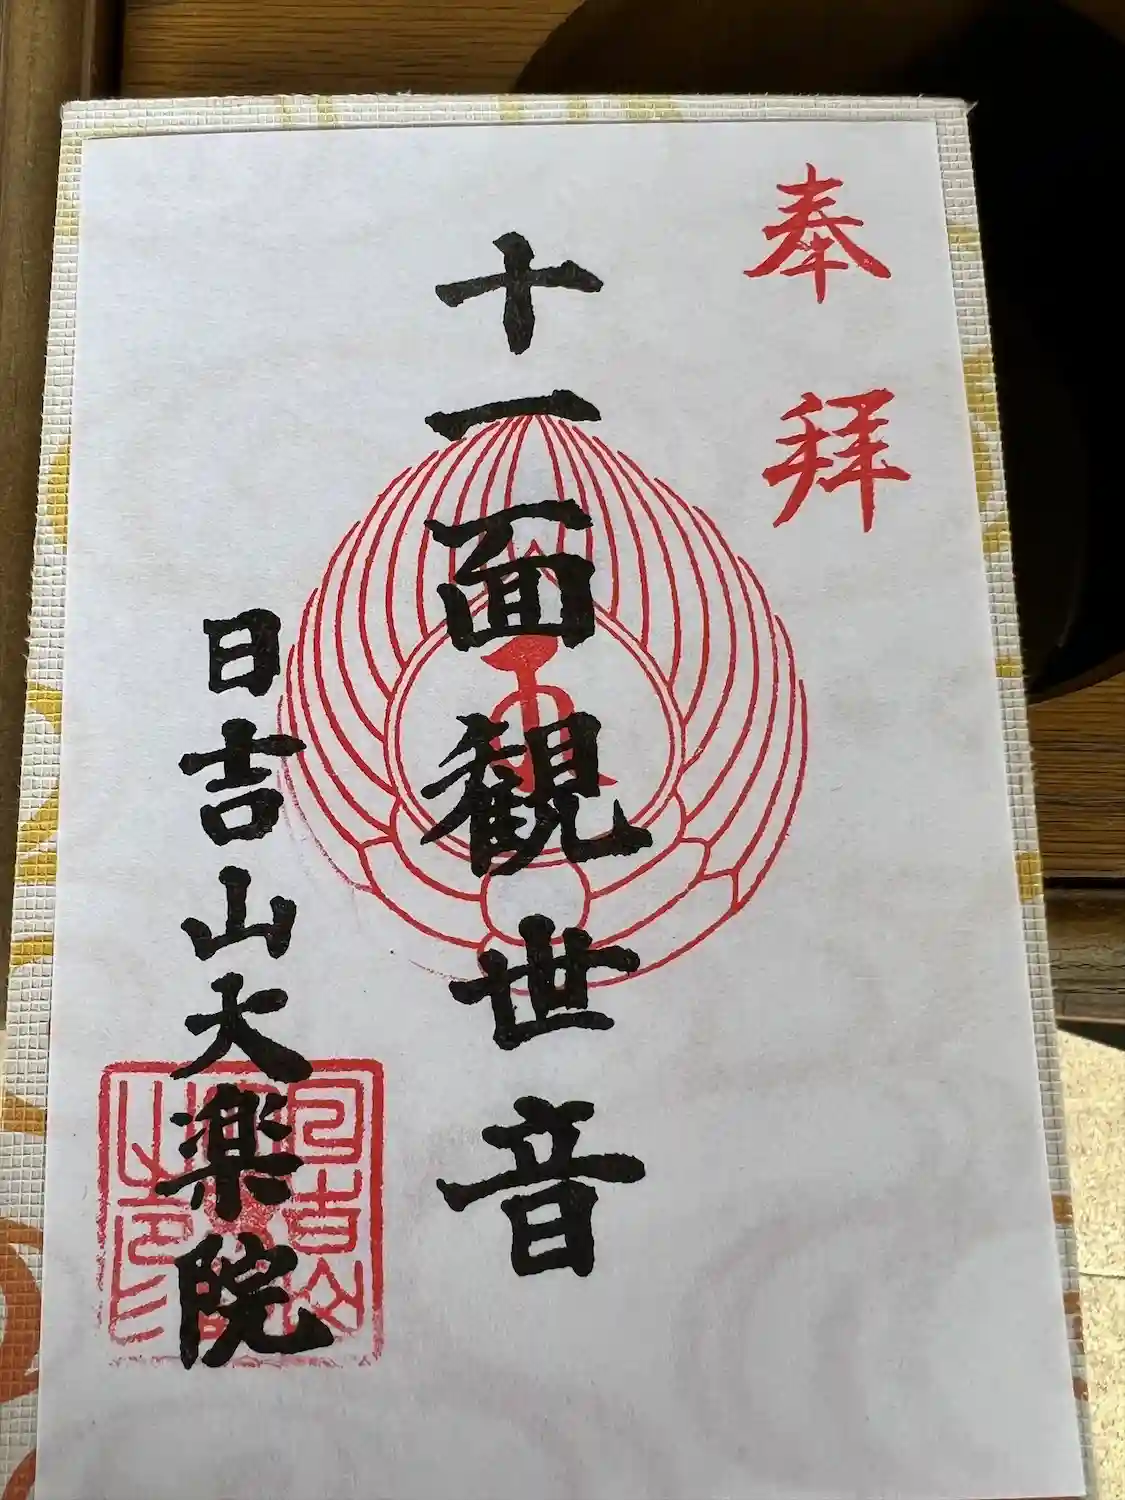 奉拝
十一面観世音
日吉山大楽院